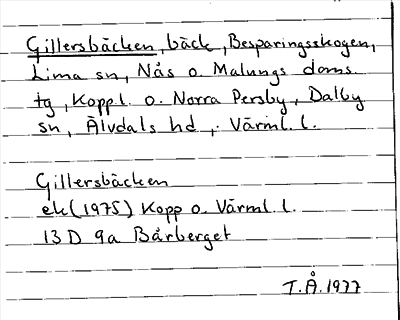 Gillersbäcken, bäck, Besparingsskogen,
Lima sn, Nås o. Malungs doms.
tg, Kopp.l. o. Norra Persby, Dalby
sn, Älvdals hd, Värml. l.
Gillersbäcken
ek (1975) Kopp o. Värml. l.
13 D 9a Bårberget
T.Å. 1977